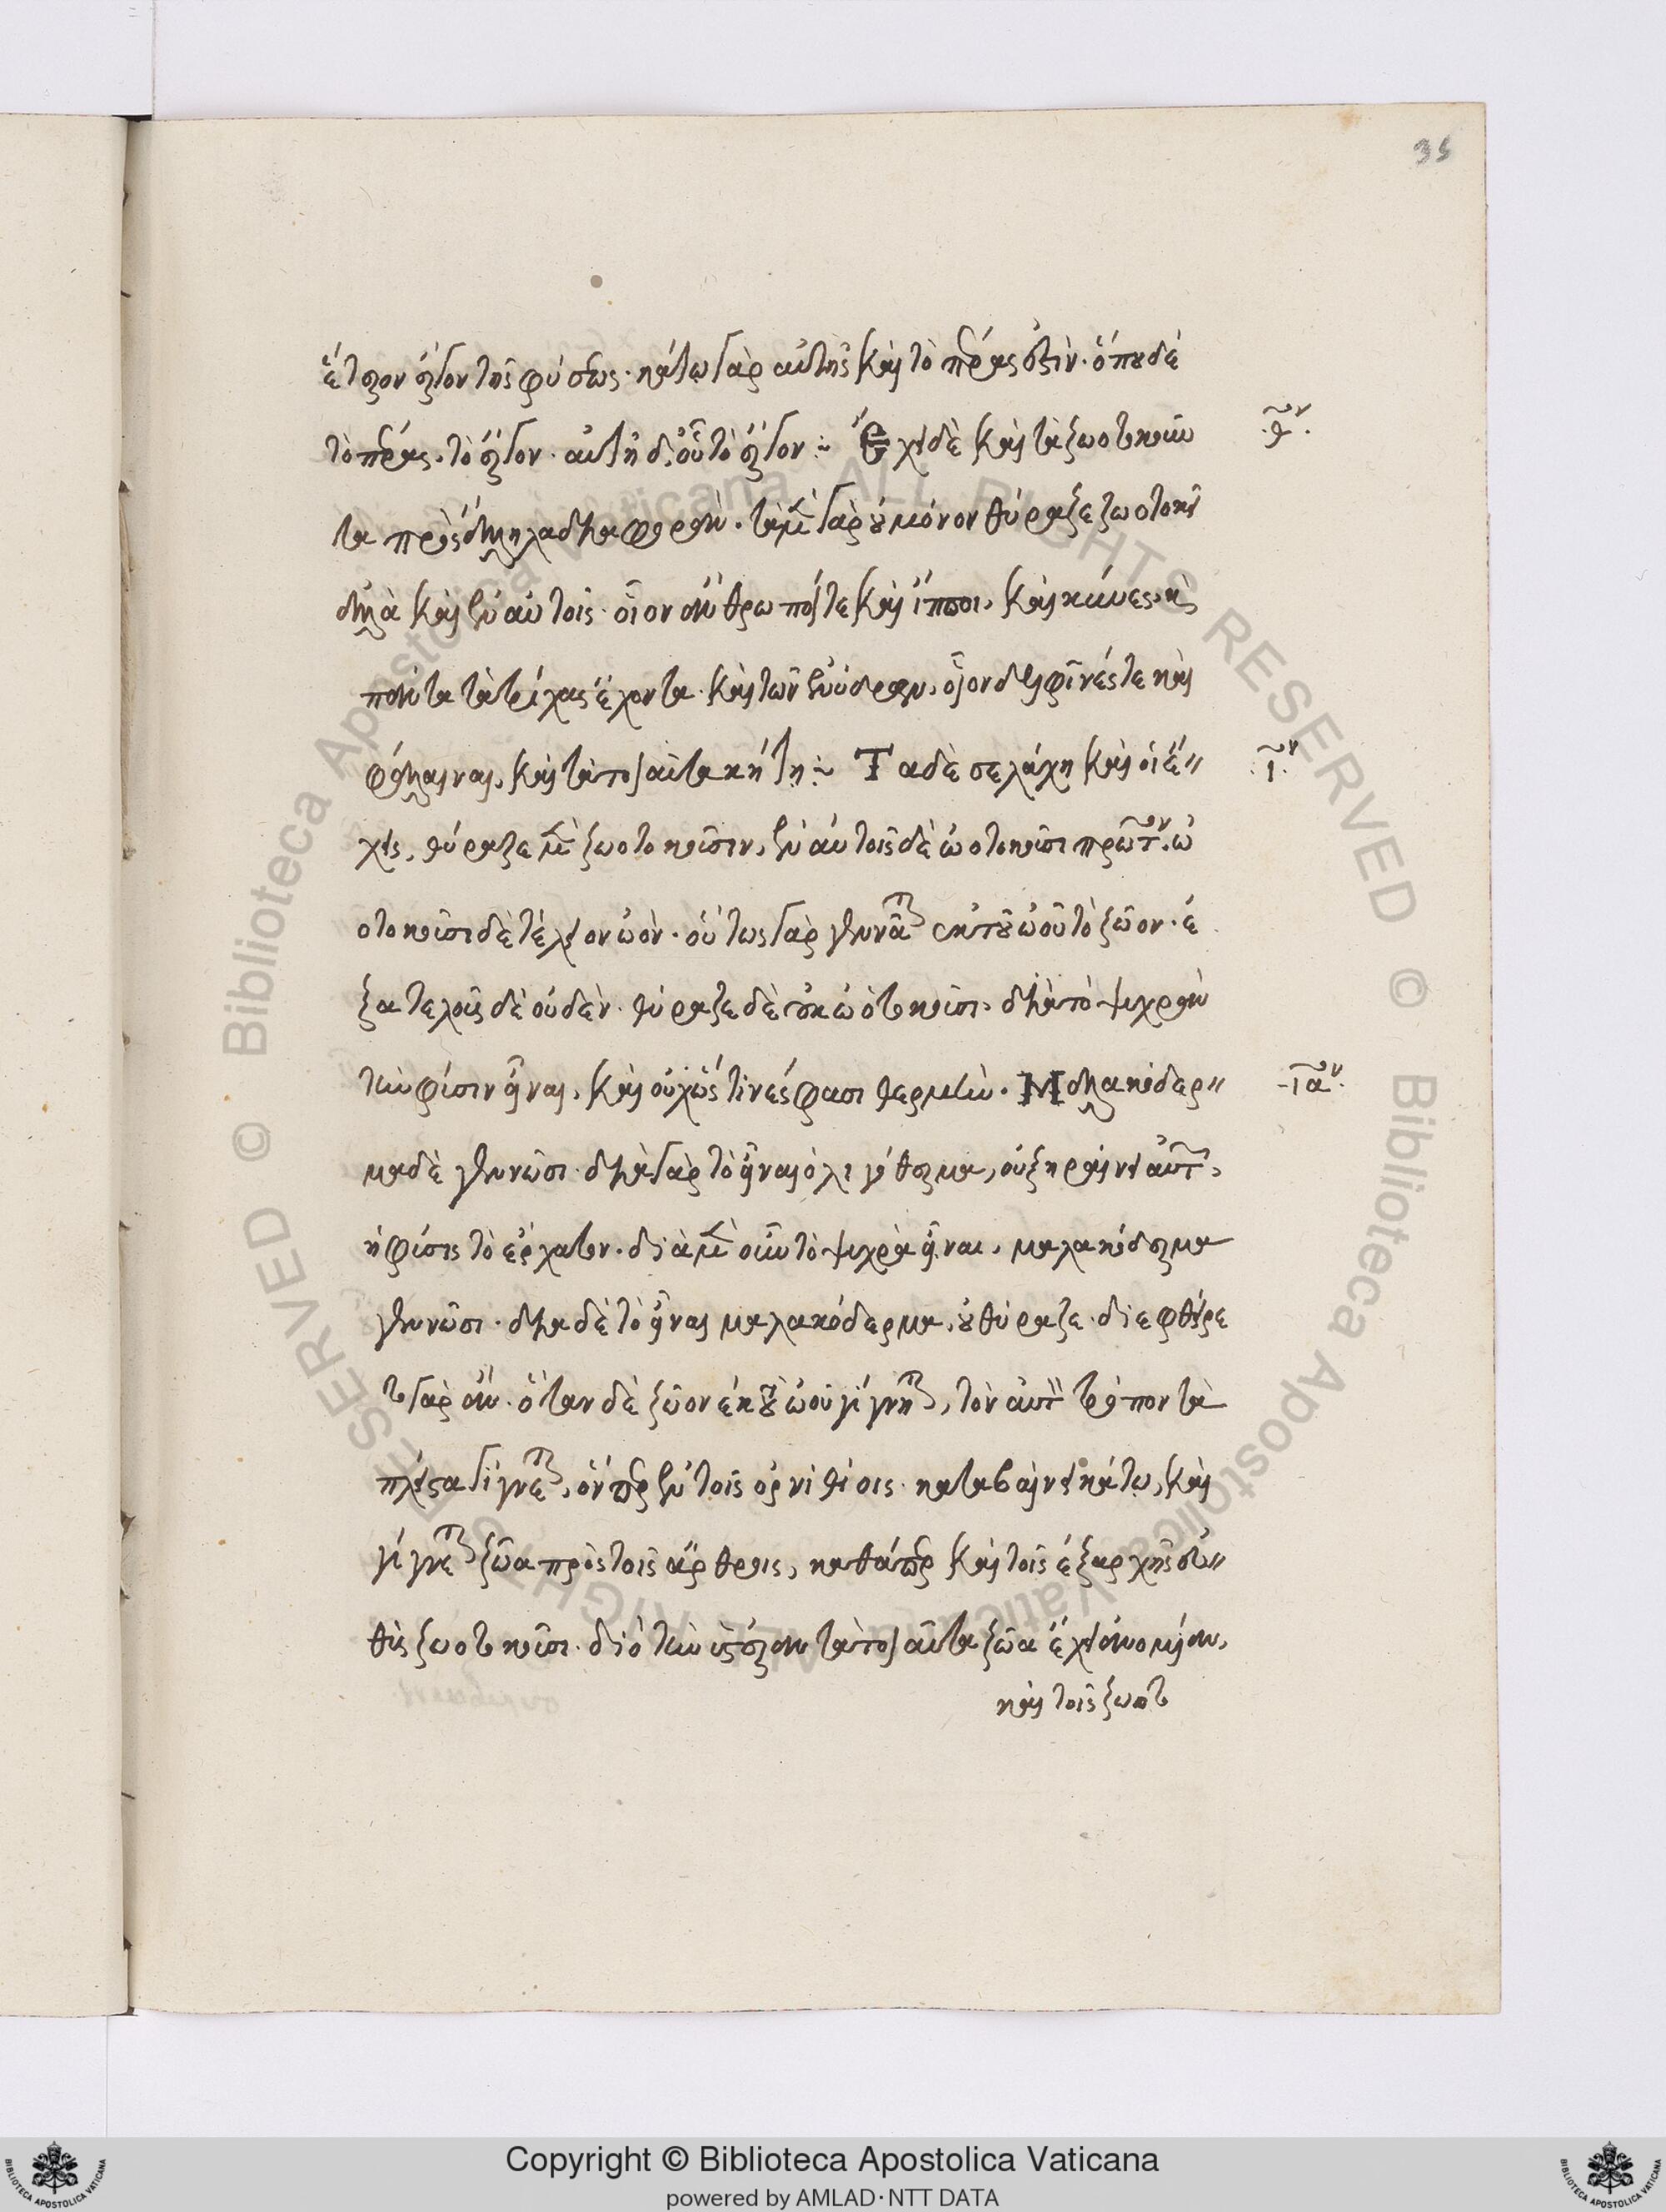 35
ἕτερον ἔργον τῆς φύσεως· κάτω γὰρ αὐτῆς καὶ τὸ πέρας ἐστίν· ὅπου δὲ
τὸ πέρας, τὸ ἔργον· αὕτη δ' οὗ τὸ ἔργον :~ Ἔχει δὲ καὶ τὰ ζωοτοκοῦν
θ ̅ν.
τα πρὸς ἄλληλα διαφοράν· τὰ μὲν γὰρ οὐ μόνον θύραζε ζωοτοκεῖ
ἀλλὰ καὶ ἐν αὑτοῖς· οἷον ἄνθρωποί τε καὶ ἵπποι, καὶ κύνες, καὶ
πάντα τὰ τρίχας ἔχοντα· καὶ τῶν ἐνύδρων, οἷον δελφῖνές τε καὶ
φάλαιναι, καὶ τὰ τοιαῦτα κήτη :~ Τὰ δὲ σελάχη καὶ οἱ ἔ〃
ι ̅ν.
χεις, θύραζε μὲν ζωοτοκοῦσιν, ἐν αὑτοῖς δὲ ὠοτοκοῦσι πρῶτον· ὠ
οτοκοῦσι δὲ τέλειον ὠόν· οὕτως γὰρ γεννᾶται ἐκ τοῦ ὠοῦ τὸ ζῶον· ἐ
ξ ἀτελοῦς δὲ οὐδέν· θύραζε δὲ οὐκ ὠοτοκοῦσι, διὰ τὸ ψυχρὰν
τὴν φύσιν εἶναι, καὶ οὐχ ὥς τινές φασι θερμήν. Μαλακόδερ〃
ια ̅ν.
μα δὲ γεννῶσι· διὰ γὰρ τὸ εἶναι ὀλιγόθερμα, οὐ ξηραίνει αὐτῶν
ἡ φύσις τὸ ἔσχατον· διὰ μὲν οὖν τὸ ψυχρὰ εἶναι, μαλακόδερμα
γεννῶσι· διὰ δὲ τὸ εἶναι μαλακόδερμα, οὐ θύραζε· διεφθείρε
το γὰρ ἄν· ὅταν δὲ ζῶον ἐκ τοῦ ὠοῦ γίγνηται, τὸν αὐτὸν τρόπον τὰ
πλεῖστα γίγνεται, ὅνπερ ἐν τοῖς ὀρνιθίοις· καταβαίνει κάτω, καὶ
γίγνεται ζῶα πρὸς τοῖς ἄρθροις, καθάπερ καὶ τοῖς ἐξ ἀρχῆς εὐ〃
θὺς ζωοτοκοῦσι· διὸ τὴν ὑστέραν τὰ τοιαῦτα ζῶα ἔχει ἀνομοίαν,
καὶ τοῖς ζωοτ
Copyright © Biblioteca Apostolica Vaticana
powered by AMLAD·NTT DATA